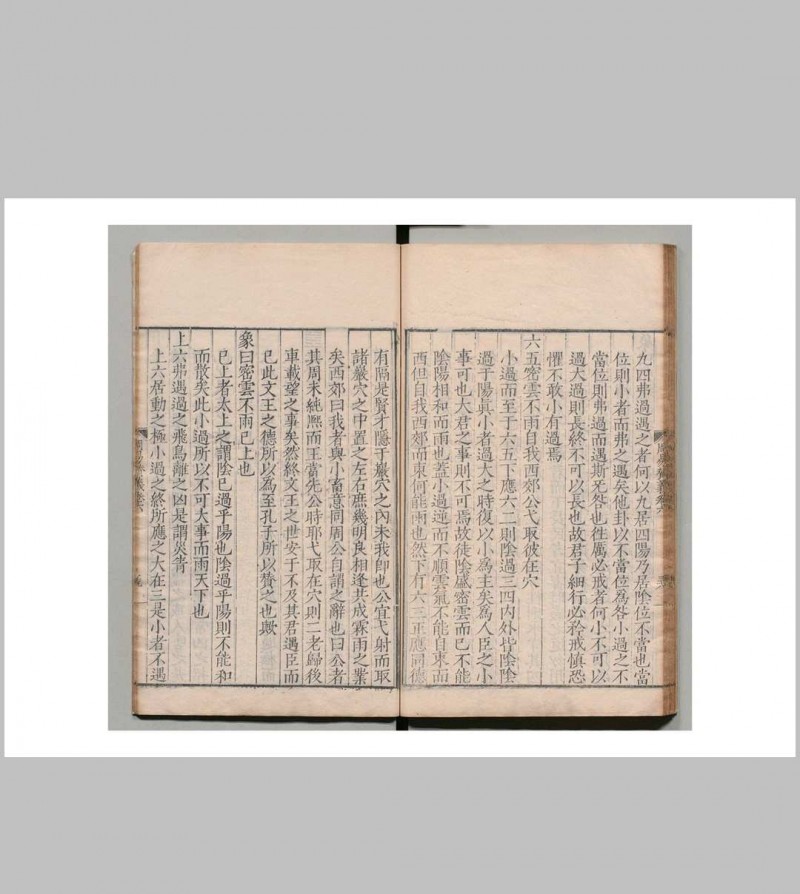 九四弗過遇之者何以九居四陽乃居陰位不當也當
位則小者而弗之遇矣他卦以不當位為咎小過之不
當位則弗過而遇斯无咎也往厲必戒者何小不可以
過大過則長終不可以長也故君子細行必矜戒慎恐
懼不敢小有過焉
六五密雲不雨自我西郊公弋取彼在穴
小過而至于六五下應六二則陰過三四內外皆陰陰
過于陽真小者過大之時復以小為主矣為人臣之小
事可也大君之事則不可焉故徒陰盛密雲而已不能
陰陽相和而雨也蓋小過逆而不順雲氣不能自東而
西但自我西郊而東何能雨也然下有六二正應同德
有隔是賢才隱于巖穴之內未我即也公宜弋射而取
諸巖穴之中置之左右庶幾明良相逢共成霖雨之業
矣西郊曰我者與小畜意同周公自謂之辭也曰公者
其周末純熈而王當先公時耶弋取在穴則二老歸後
車載望之事矣然終文王之世安于不及其君遇臣而
已此文王之德所以為至孔子所以贊之也歟
象曰密雲不雨已上也
已上者太上之謂陰已過乎陽也陰過乎陽則不能和
而散矣此小過所以不可大事而雨天下也
上六弗遇過之飛鳥離之凶是謂災眚
上六居動之極小過之終所應之大在三是小者不遇